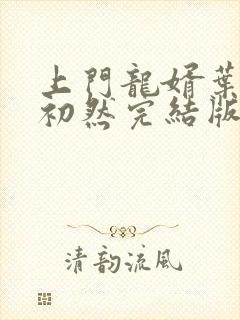 上門龍婿葉
初然完結版
清韵流风